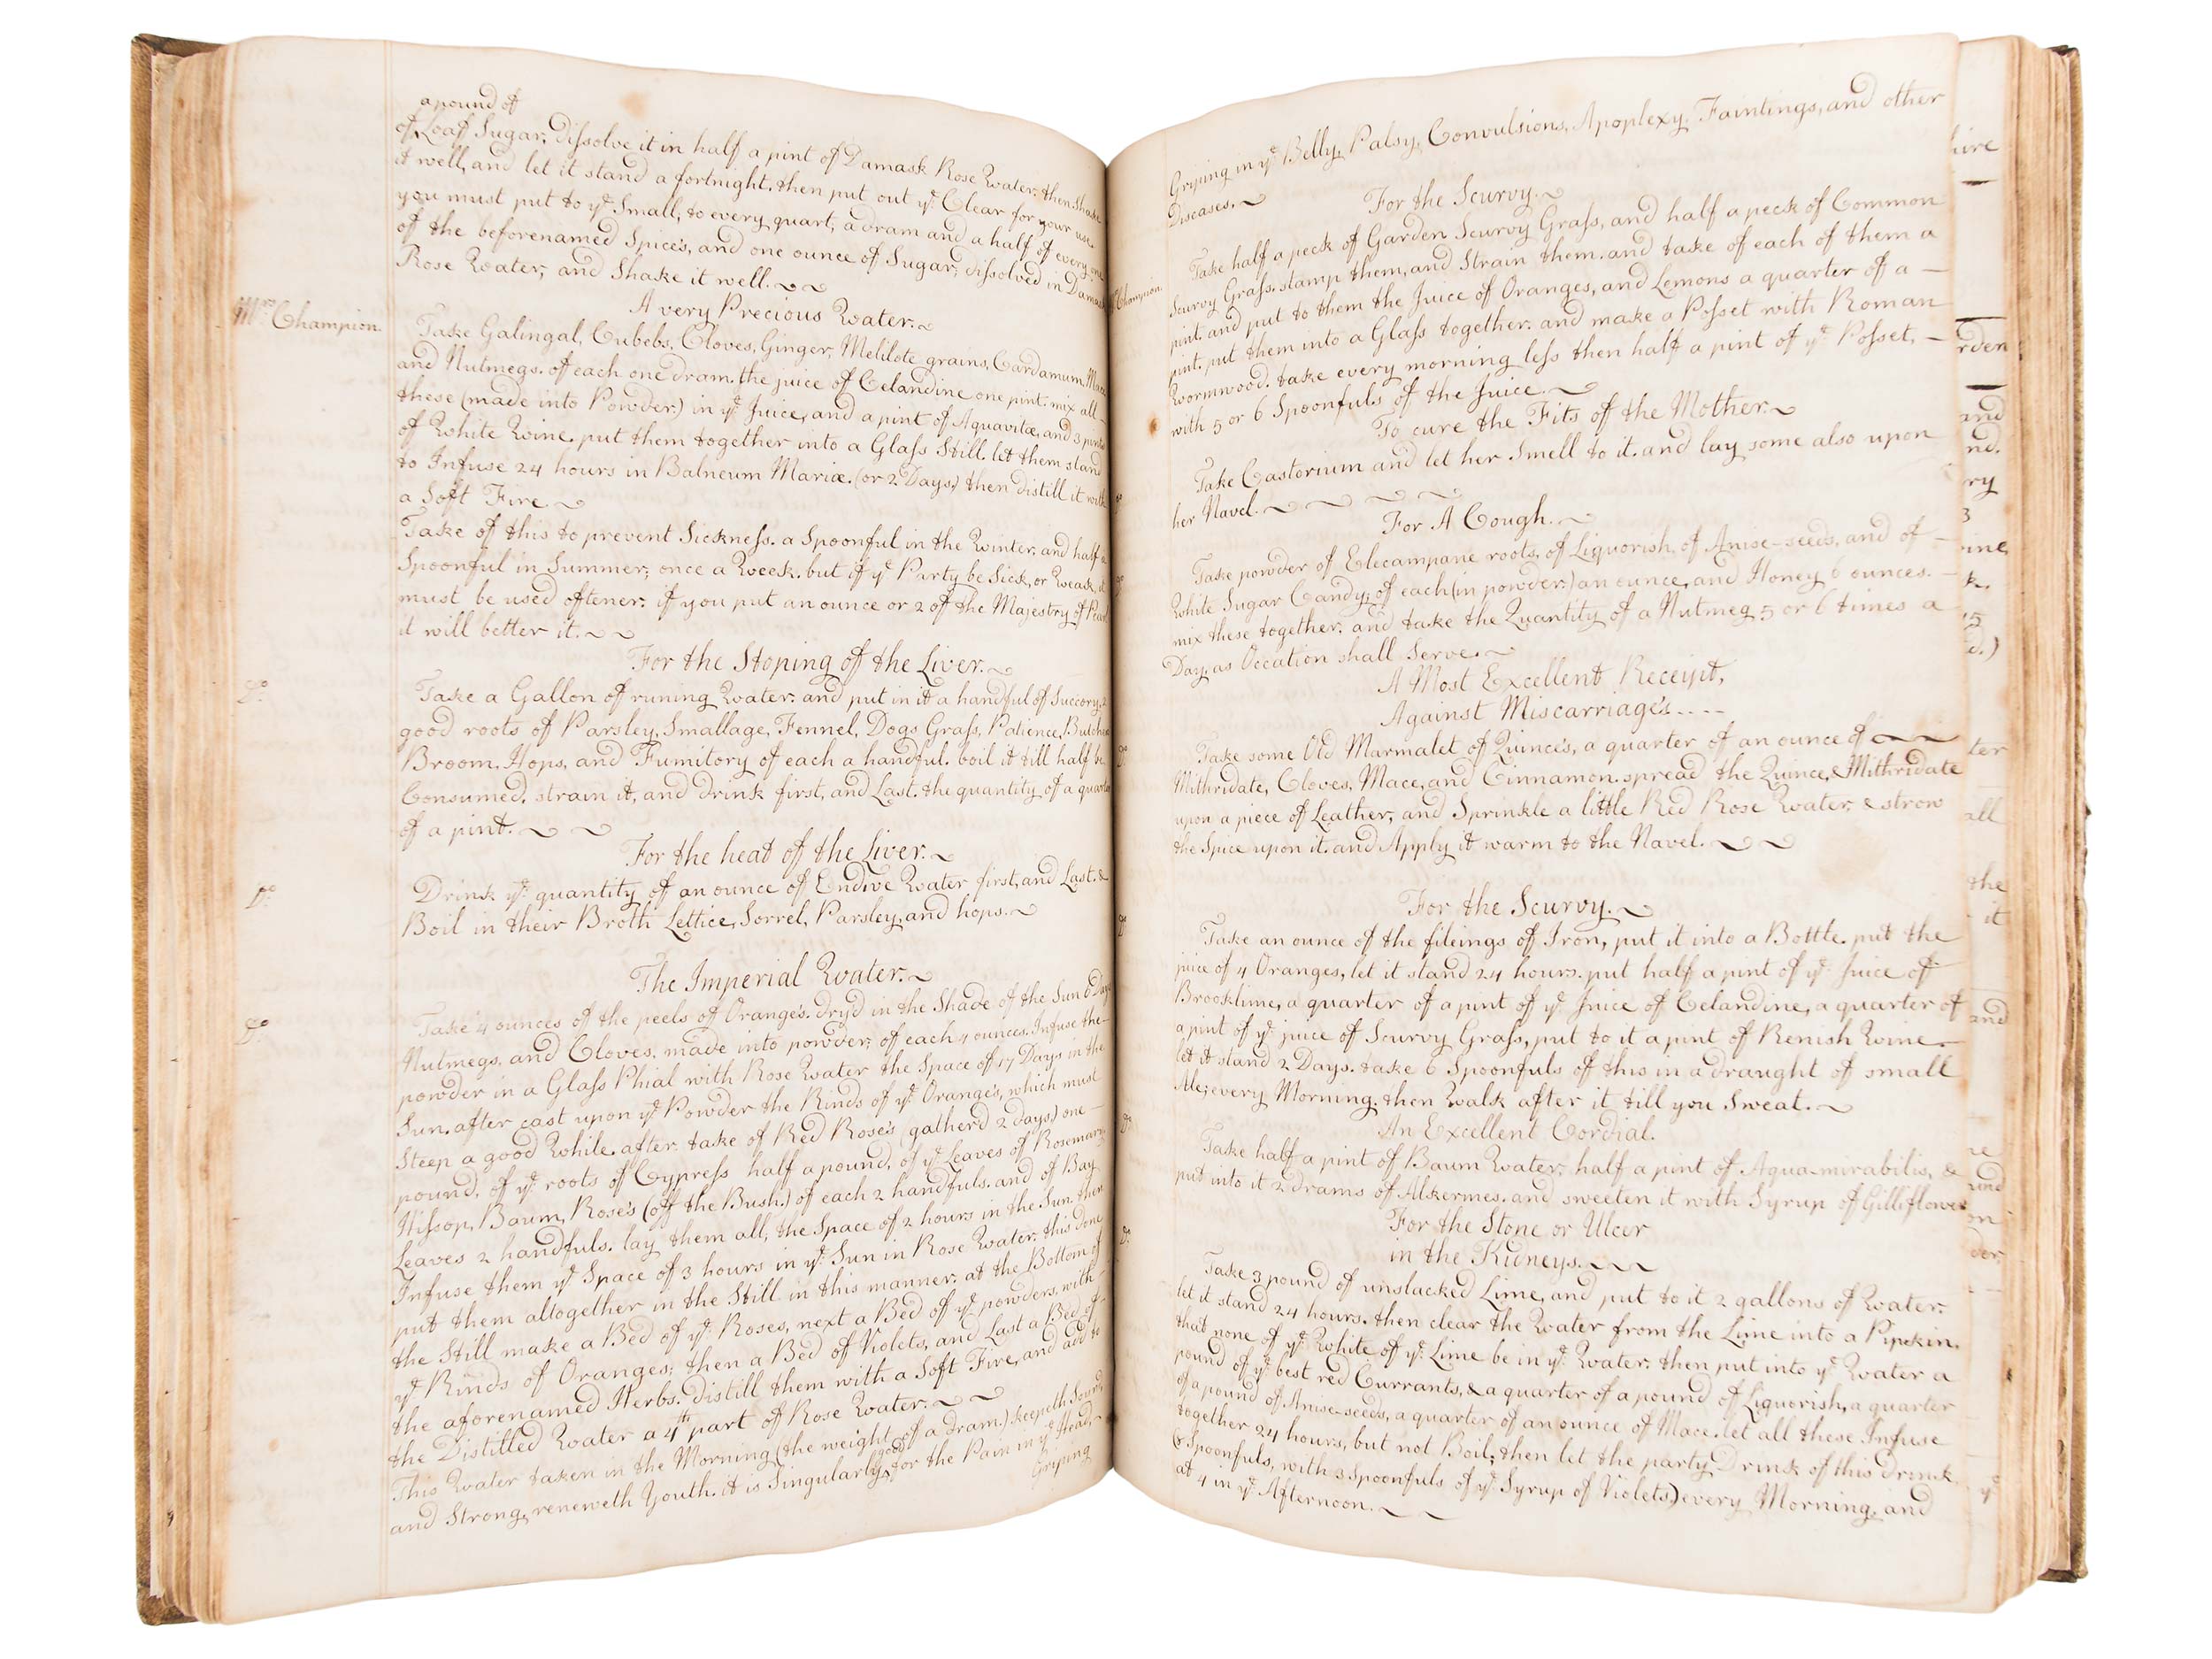 a pound of
of Loaf Sugar, dissolve it in half a pint of Damask Rose Water. then shake
it well, and let it stand a fortnight. then put out yᵉ Clear for your use
you must put to yᵉ Small, to every quart, a dram and a half of every one
of the beforenamed Spices, and one ounce of Sugar, dissolved in Damask
Rose Water, and Shake it well.
A very Precious Water.
Mʳˢ Champion.
Take Galingal, Cubebs, Cloves, Ginger, Melilote grains, Cardamum, Mace
and Nutmegs. of each one dram. the juice of Celandine one pint. mix all
these (made into Powder) in yᵉ Juice, and a pint of Aquavitæ, and 3 pints
of White Wine. put them together into a Glass Still. let them stand
to Infuse 24 hours in Balneum Mariæ. (or 2 Days) then distill it with
a Soft Fire.
Take of this to prevent Sickness. a Spoonful in the Winter, and half a
Spoonful in Summer; once a Week. but if yᵉ Party be Sick, or Weak, it
must be used oftener. if you put an ounce or 2 of the Majestry of Pearl
it will better it.
For the Stoping of the Liver.
Dº
Take a Gallon of runing Water. and put in it a handful of Succory, 2
good roots of Parsley, Smallage, Fennel, Dogs Grass, Patience, Butchers
Broom, Hops, and Fumitory of each a handful. boil it till half be
Consumed. strain it, and drink first, and Last. the quantity of a quarter
of a pint.
For the heat of the Liver.
Dº
Drink yᵉ quantity of an ounce of Endive Water first, and Last. &
Boil in their Broth Lettice, Sorrel, Parsley, and hops.
The Imperial Water.
Dº
Take 4 ounces of the peels of Oranges. dry'd in the Shade of the Sun 6 Days
Nutmegs, and Cloves. made into powder, of each 4 ounces. Infuse the
powder in a Glass Phial with Rose Water the Space of 17 Days in the
Sun. after cast upon yᵉ Powder the Rinds of yᵉ Oranges, which must
Steep a good While. after take of Red Roses (gatherd 2 days) one
pound, of yᵉ roots of Cypress half a pound, of yᵉ Leaves of Rosemary
Hissop, Baum, Roses (off the Bush.) of each 2 handfuls. and of Bay
Leaves 2 handfuls. lay them all, the Space of 2 hours in the Sun. then
Infuse them yᵉ Space of 3 hours in yᵉ Sun in Rose Water. this done
put them altogether in the Still in this manner. at the Bottom of
the Still make a Bed of yᵉ Roses, next a Bed of yᵉ powders, with
yᵉ Rinds of Oranges; then a Bed of Violets, and Last a Bed of
the aforenamed Herbs. distill them with a Soft Fire, and add to
the Distilled Water a 4ᵗʰ part of Rose Water.
This Water taken in the Morning (the weight of a dram.) keepeth Sound
and Strong, reneweth Youth. it is Singularly good for the Pain in yᵉ Head
Griping
Griping in yᵉ Belly, Palsy, Convulsions, Apoplexy, Faintings, and other
Diseases.
For the Scurvy.
Champion.
Take half a peck of Garden Scurvy Grass, and half a peck of Common
Scurvy Grass. stamp them, and Strain them. and take of each of them a
pint. and put to them the Juice of Oranges, and Lemons a quarter of a
pint. put them into a Glass together. and make a Posset with Roman
Wormwood. take every morning less then half a pint of yᵉ Posset,
with 5 or 6 Spoonfuls of the Juice.
To cure the Fits of the Mother.
Take Castorium and let her Smell to it. and lay some also upon
her Navel.
For A Cough.
Take powder of Elecampane roots, of Liquorish, of Anise-seeds, and of
White Sugar Candy, of each (in powder) an ounce, and Honey 6 ounces.
mix these together. and take the Quantity of a Nutmeg 5 or 6 times a
Day, as Occation shall Serve.
A Most Excellent Receipt,
Against Miscarriages....
Take some Old Marmalet of Quinces, a quarter of an ounce of
Mithridate, Cloves, Mace, and Cinnamon. spread the Quince, & Mithridate
upon a piece of Leather, and Sprinkle a little Red Rose Water. & strow
the Spice upon it. and Apply it warm to the Navel.
For the Scurvy.
Take an ounce of the fileings of Iron, put it into a Bottle. put the
juice of 4 Oranges, let it stand 24 hours. put half a pint of yᵉ Juice of
Brooklime, a quarter of a pint of yᵉ Juice of Celandine, a quarter of
a pint of yᵉ juice of Scurvy Grass, put to it a pint of Renish Wine.
let it stand 2 Days. take 6 Spoonfuls of this in a draught of small
Ale; every Morning, then Walk after it till you Sweat.
An Excellent Cordial.
Take half a pint of Baum Water, half a pint of Aqua-mirabilis, &
put into it 2 drams of Alkermes. and sweeten it with Syrup of Gilliflower
For the Stone or Ulcer
in the Kidneys.
Take 3 pound of unslacked Lime, and put to it 2 gallons of Water.
let it stand 24 hours. then clear the Water from the Lime into a Pipkin,
that none of yᵉ White of yᵉ Lime be in yᵉ Water. then put into yᵉ Water a
pound of yᵉ best red Currants, & a quarter of a pound of Liquorish, a quarter
of a pound of Anise-seeds, a quarter of an ounce of Mace. let all these Infuse
together 24 hours, but not Boil; then let the party Drink of this drink
(8 Spoonfuls, with 3 Spoonfuls of yᵉ Syrup of Violets) every Morning, and
at 4 in yᵉ Afternoon.